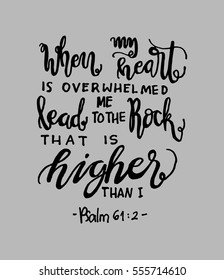 When my heart
IS OVERWHELMED
lead ME TO THE Rock
THAT IS
higher
THAN I
- Psalm 61:2 -
shutterstock.com · 555714610